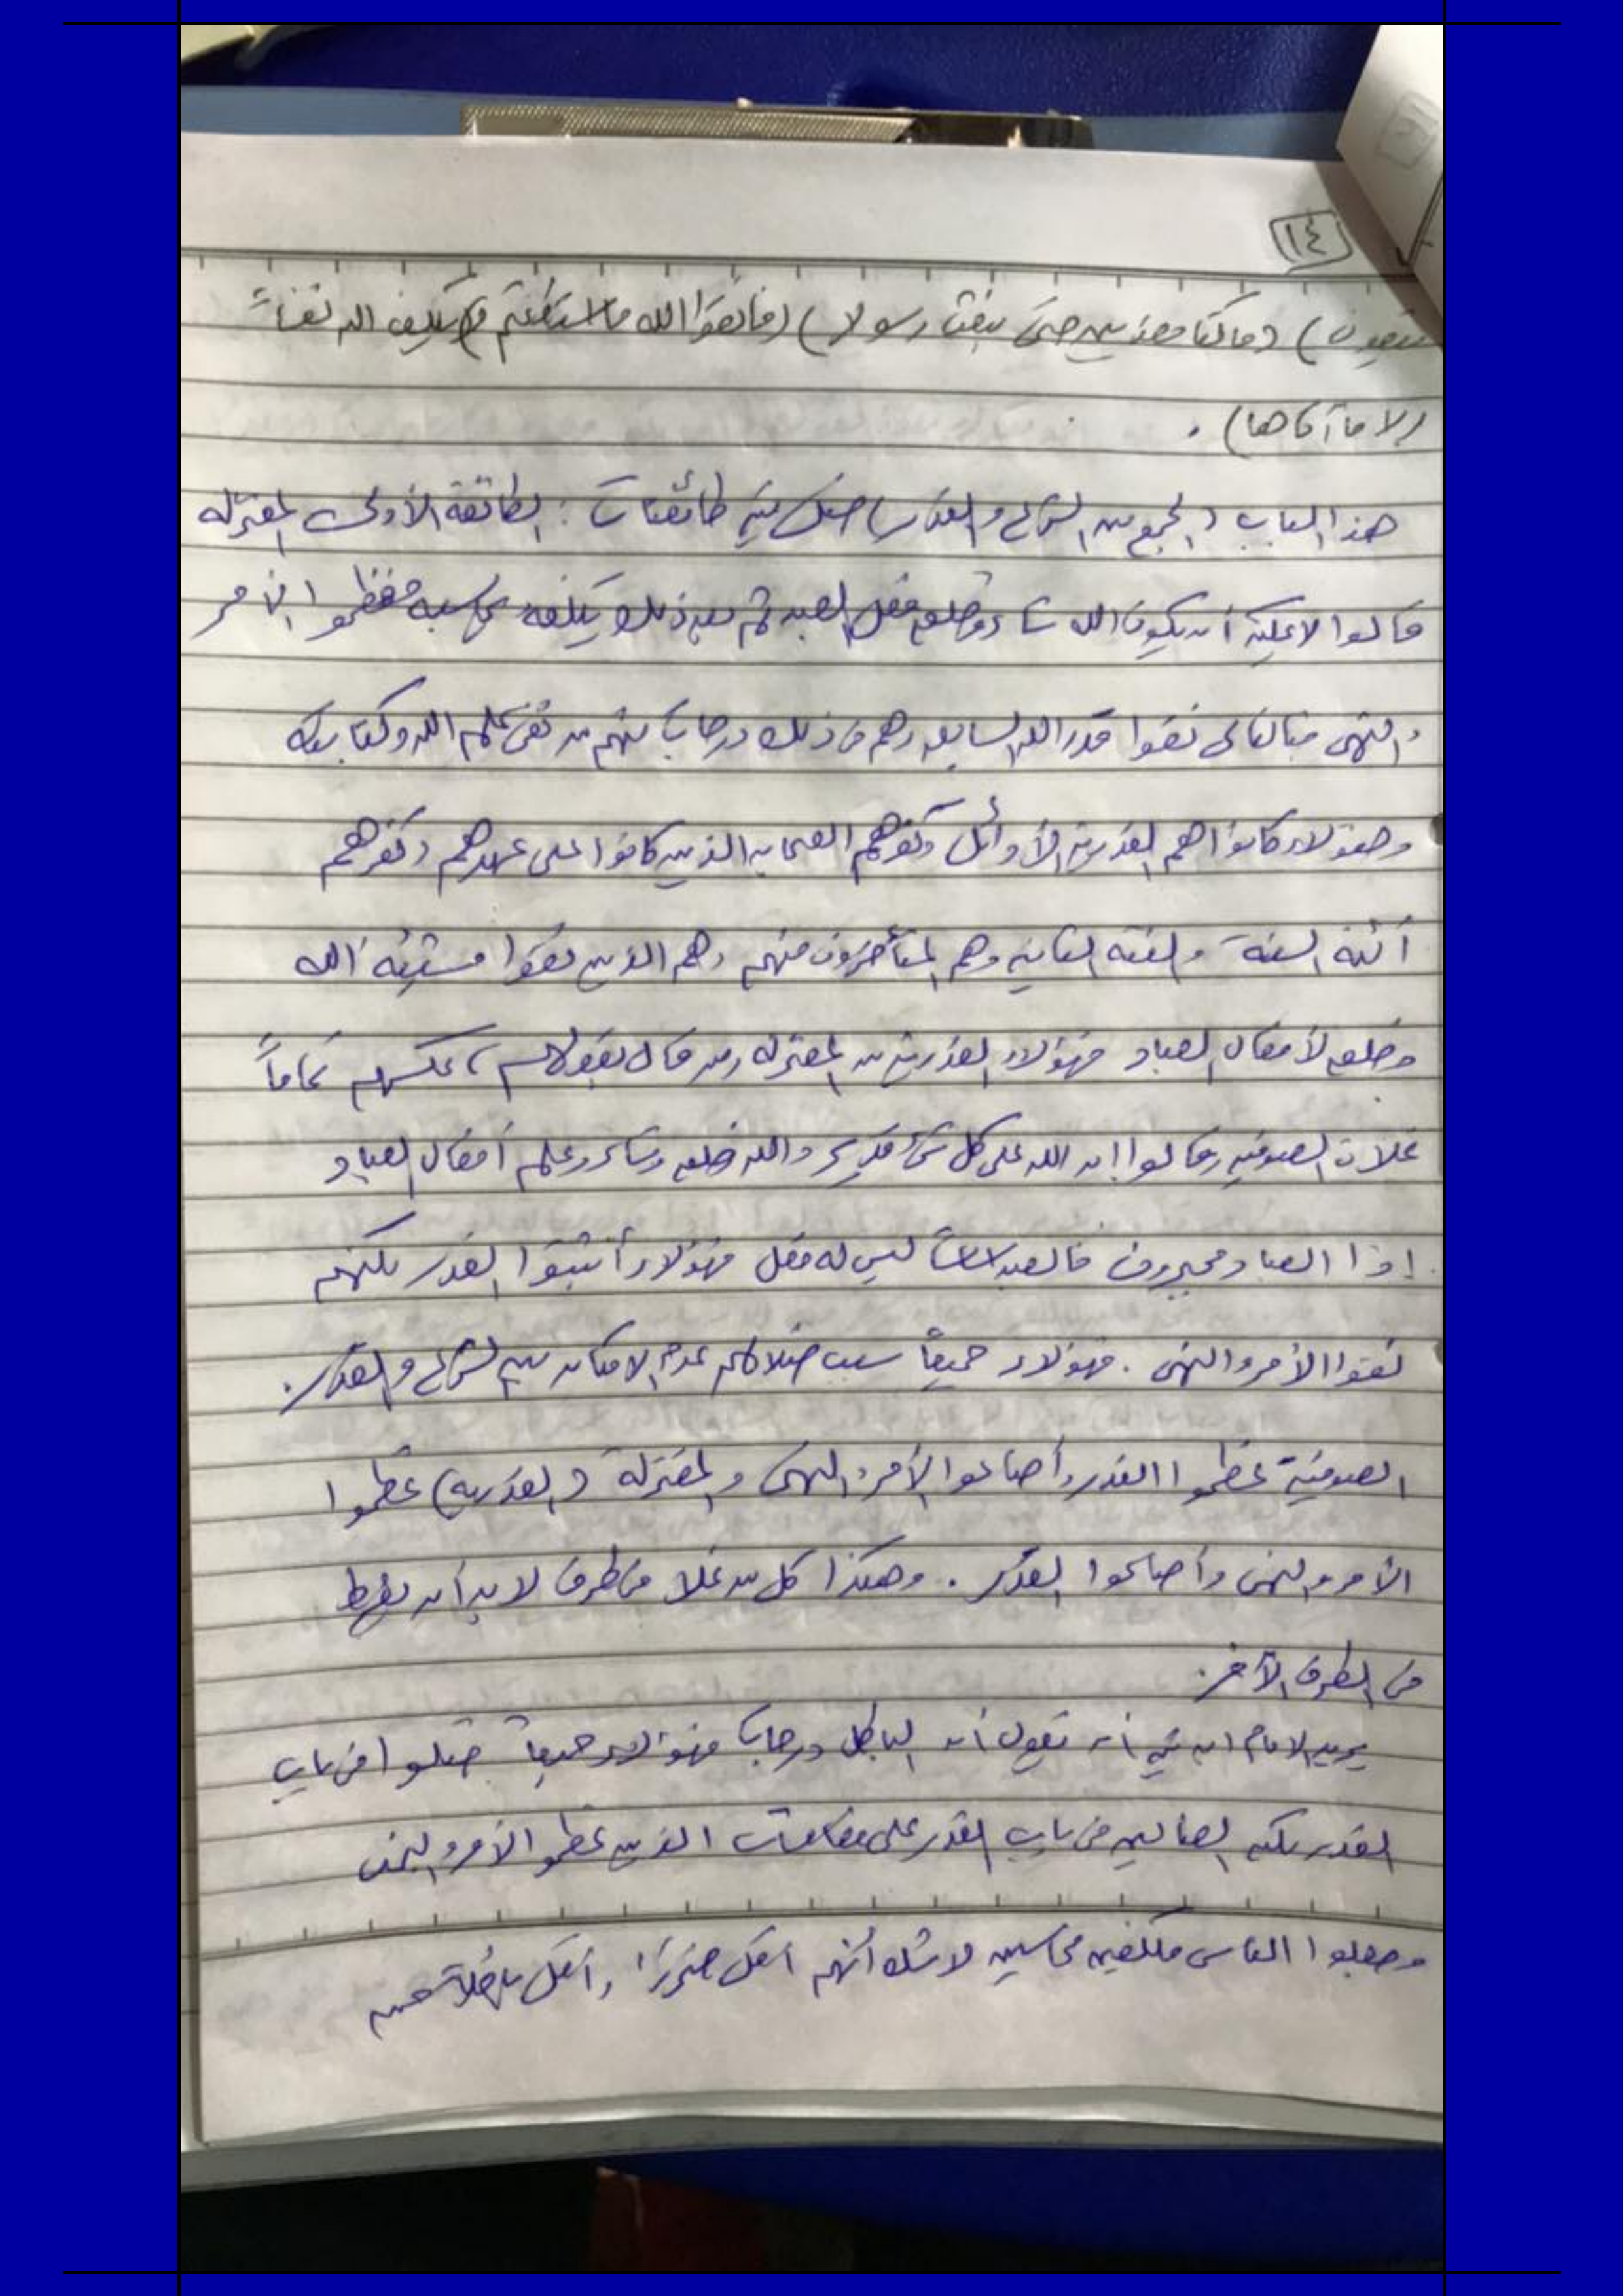 ١٤
يتقون) (وما كنا معذبين حتى نبعث رسولا) (فاتقوا الله ما استطعتم) (لا يكلف الله نفساً
إلا ما آتاها) .
هذا الباب (الجمع بين الشرع والقدر) ضل فيه طائفتان : الطائفة الأولى المعتزلة
قالوا لا يمكن أن يكون الله شاء وخلق فعل العبد ثم بعد ذلك يكلفه يحاسبه فعظموا الأمر
والنهي فبالتالي نفوا قدر الله السابق وهم في ذلك درجات منهم من نفى علم الله وكتابته
وهؤلاء كانوا هم القدرية الأوائل وكفرهم الصحابه الذين كانوا على عهدهم وكفرهم
أئمة السنة والفئة الثانيه وهم المتأخرون منهم وهم الذين نفوا مشيئة الله
وخلقه لأفعال العباد فهؤلاء القدرية من المعتزله ومن قال بقولهم، عكسهم تماماً
غلات الصوفيه وقالوا إن الله على كل شئ قدير والله خلق وشاء وعلم أفعال العباد
إذا العباد مجبرون فالعبد ليس له فعل فهؤلاء أثبتوا القدر لكنهم
نفوا الأمر والنهي . فهؤلاء جميعاً سبب ضلالهم عدم الايمان بين الشرع والقدر .
الصوفية عظموا القدر وأضاعوا الأمر والنهى والمعتزلة (القدريه) عظموا
الأمر والنهى وأضاعوا القدر . وهكذا كل من غلا في طرف لا بد أن يفرط
في الطرف الآخر .
يريد الامام ابن تيمية أن يقول أن الباطل درجات فهؤلاء جميعاً ضلوا في باب
القدر لكن الضالين في باب القدر على مقامات الذين عظموا الأمر والنهى
وجعلوا الناس مكلفين محاسبين لا شك أنهم أقل ضررا وأقل